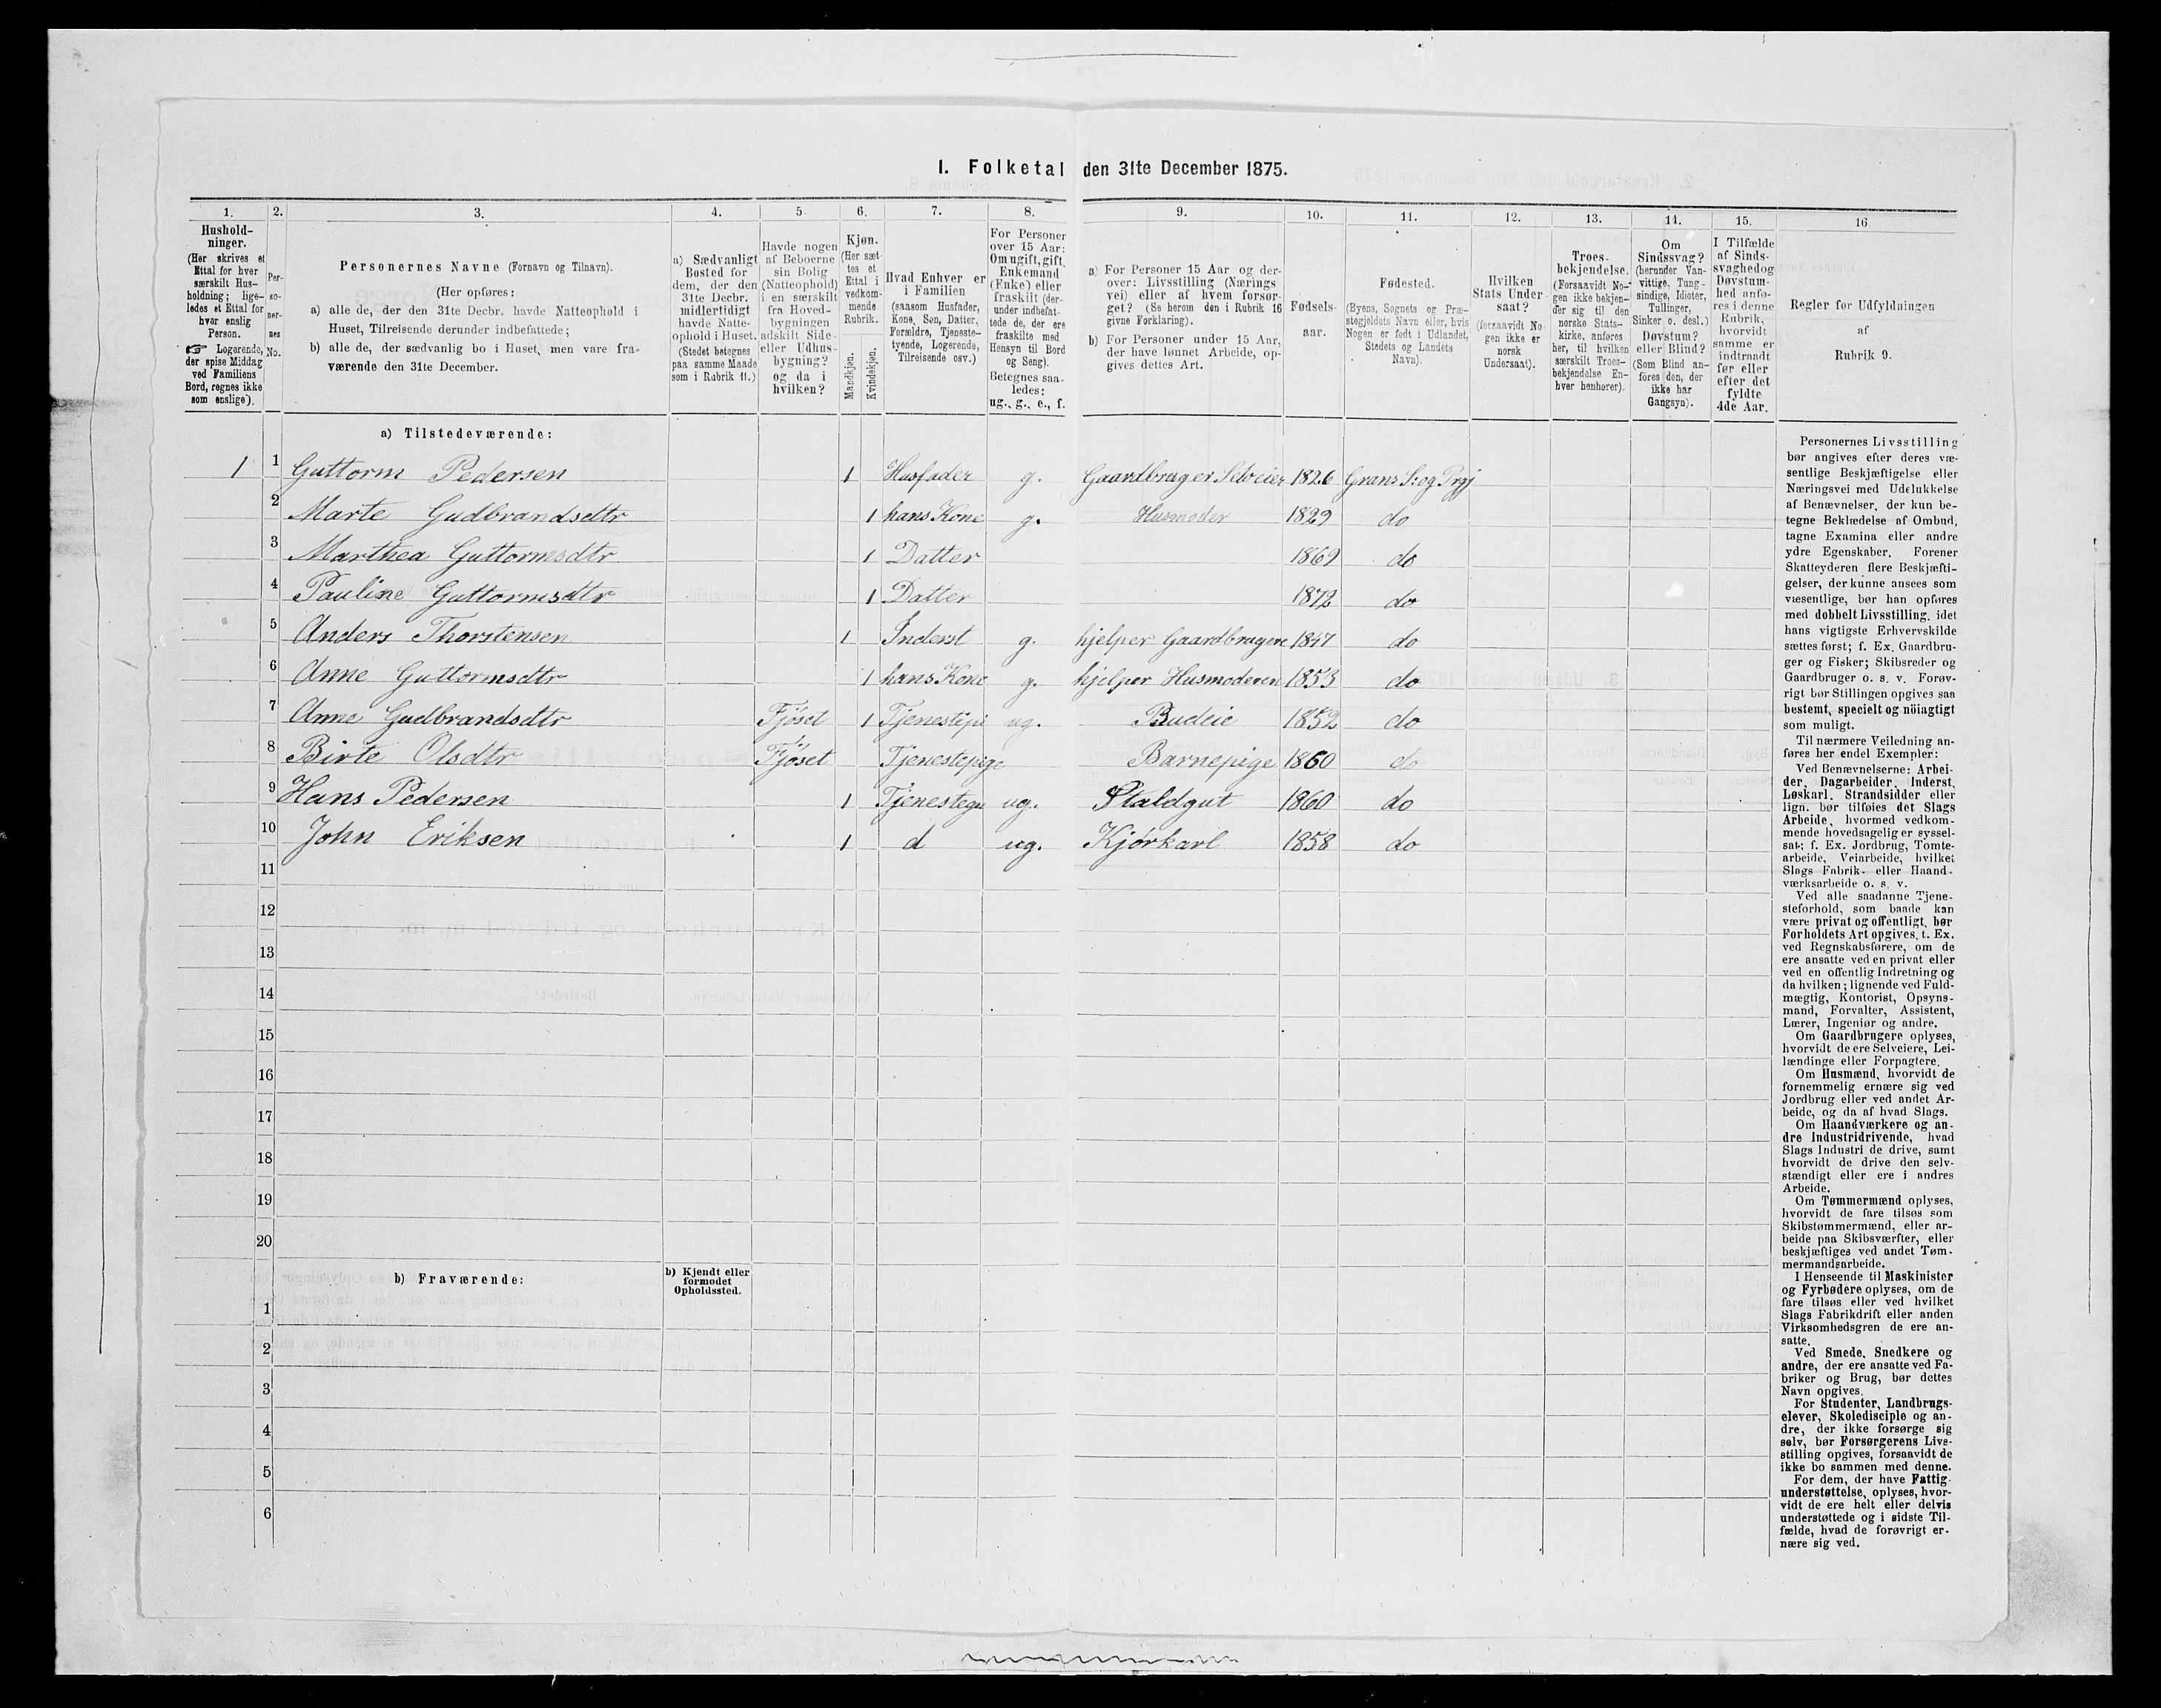 I. Folketal den 31te December 1875.
1. 2. 3. 4. 5. 6. 7. 8. 9. 10. 11. 12. 13. 14. 15. 16.
Hushold-
ninger.
(Her skrives et
Ettal for hver
særskilt Hus-
holdning; lige-
ledes et Ettal for
hver enslig
Person.
☞ Logerende,
der spise Middag
ved Familiens
Bord, regnes ikke
som enslige).
Per-
so-
ner-
nes
No.
Personernes Navne (Fornavn og Tilnavn).
(Her opføres:
a) alle de, der den 31te Decbr. havde Natteophold i
Huset, Tilreisende derunder indbefattede;
b) alle de, der sædvanlig bo i Huset, men vare fra-
værende den 31te December.
a) Sædvanligt
Bosted for
dem, der den
31te Decbr.
midlertidigt
havde Natte-
ophold i Huset.
(Stedet betegnes
paa samme Maade
som i Rubrik 11.)
Havde nogen
af Beboerne
sin Bolig
(Natteophold)
i en særskilt
fra Hoved-
bygningen
adskilt Side-
eller Udhus-
bygning?
og da i
hvilken?
Kjøn.
(Her sæt-
tes et
Ettal i
vedkom-
mende
Rubrik.
Mandkjøn.
Kvindekjøn.
Hvad Enhver er
i Familien
(saasom Husfader,
Kone, Søn, Datter,
Forældre, Tjeneste-
tyende, Logerende,
Tilreisende osv.)
For Personer
over 15 Aar:
Om ugift, gift,
Enkemand
(Enke) eller
fraskilt (der-
under indbefat-
tede de, der ere
fraskilte med
Hensyn til Bord
og Seng).
Betegnes saa-
ledes:
ug., g., e., f.
a) For Personer 15 Aar og der-
over: Livsstilling (Nærings
vei) eller af hvem forsør-
get? (Se herom den i Rubrik 16
givne Forklaring).
b) For Personer under 15 Aar,
der have lønnet Arbeide, op-
gives dettes Art.
Fødsels-
aar.
Fødested.
(Byens, Sognets og Præ-
stegjeldets Navn eller, hvis
Nogen er født i Udlandet,
Stedets og Landets
Navn).
Hvilken
Stats Under-
saat?
(forsaavidt No-
gen ikke er
norsk
Undersaat).
Troes-
bekjendelse.
(Forsaavidt No-
gen ikke bekjen-
der sig til den
norske Stats-
kirke, anføres
her, til hvilken
særskilt Troes-
bekjendelse En-
hver henhører).
Om
Sindssvag?
(herunder Van-
vittige, Tung-
sindige, Idioter,
Tullinger,
Sinker o. desl.)
Døvstum?
eller Blind?
(Som Blind an-
føres den, der
ikke har
Gangsyn).
I Tilfælde
af Sinds-
svaghed og
Døvstum-
hed anfø-
res i denne
Rubrik,
hvorvidt
samme er
indtraadt
før eller
efter det
fyldte
4de Aar.
Regler for Udfyldningen
af
Rubrik 9.
a) Tilstedeværende:
1 1 Guttorm Pedersen 1 Husfader g. Gaardbruger Selveier 1826 Grans S: og Prgj
2 Marte Gudbrandsdtr 1 hans Kone g. Husmoder 1829 do
3 Marthea Guttormsdtr 1 Datter 1869 do
4 Pauline Guttormsdtr 1 Datter 1872 do
5 Anders Thorstensen 1 Inderst g. hjelper Gaardbrugere 1847 do
6 Anne Guttormsdtr 1 hans Kone g. hjelper Husmoderen 1853 do
7 Anne Gudbrandsdtr Fjøset 1 Tjenestepi ug. Budeie 1852 do
8 Birte Olsdtr Fjøset Tjenestepige Barnepige 1860 do
9 Hans Pedersen 1 Tjenestegu ug. Staldgut 1860 do
10 John Eriksen 1 d ug. Kjørkarl 1858 do
11
12
13
14
15
16
17
18
19
20
b) Fraværende:
b) Kjendt eller
formodet
Opholdssted.
1
2
3
4
5
6
Personernes Livsstilling
bør angives efter deres væ-
sentlige Beskjæftigelse eller
Næringsvei med Udelukkelse
af Benævnelser, der kun be-
tegne Beklædelse af Ombud,
tagne Examina eller andre
ydre Egenskaber. Forener
Skatteyderen flere Beskjæfti-
gelser, der kunne ansees som
væsentlige, bør han opføres
med dobbelt Livsstilling, idet
hans vigtigste Erhvervskilde
sættes først; f. Ex. Gaardbru-
ger og Fisker; Skibsreder og
Gaardbruger o. s. v. Forøv-
rigt bør Stillingen opgives saa
bestemt, specielt og nöiagtigt
som muligt.
Til nærmere Veiledning an-
føres her endel Exempler:
Ved Benævnelserne: Arbei-
der, Dagarbeider, Inderst,
Løskarl, Strandsidder eller
lign. bør tilføies det Slags
Arbeide, hvormed vedkom-
mende hovedsagelig er syssel-
sat; f. Ex. Jordbrug, Tomte-
arbeide, Veiarbeide, hvilket
Slags Fabrik- eller Haand-
værksarbeide o. s. v.
Ved alle saadanne Tjene-
steforhold, som baade kan
være privat og offentligt, bør
Forholdets Art opgives, t. Ex.
ved Regnskabsførere, om de
ere ansatte ved en privat eller
ved en offentlig Indretning og
da hvilken; lignende ved Fuld-
mægtig, Kontorist, Opsyns-
mand, Forvalter, Assistent,
Lærer, Ingeniør og andre.
Om Gaardbrugere oplyses,
hvorvidt de ere Selveiere, Lei-
lændinge eller Forpagtere.
Om Husmænd, hvorvidt de
fornemmelig ernære sig ved
Jordbrug eller ved andet Ar-
beide, og da af hvad Slags.
Om Haandværkere og an-
dre Industridrivende, hvad
Slags Industri de drive, samt
hvorvidt de drive den selv-
stændigt eller ere i andres
Arbeide.
Om Tømmermænd oplyses,
hvorvidt de fare tilsøs som
Skibstømmermænd, eller ar-
beide paa Skibsværfter, eller
beskjæftiges ved andet Tøm-
mermandsarbeide.
I Henseende til Maskinister
og Fyrbødere oplyses, om de
fare tilsøs eller ved hvilket
Slags Fabrikdrift eller anden
Virksomhedsgren de ere an-
satte.
Ved Smede, Snedkere og
andre, der ere ansatte ved Fa-
briker og Brug, bør dettes
Navn opgives.
For Studenter, Landbrugs-
elever, Skoledisciple og an-
dre, der ikke forsørge sig
selv, bør Forsørgerens Livs-
stilling opgives, forsaavidt de
ikke bo sammen med denne.
For dem, der have Fattig-
understøttelse, oplyses, hvor-
vidt de ere helt eller delvis
understøttede og i sidste Til-
fælde, hvad de forøvrigt er-
nære sig ved.